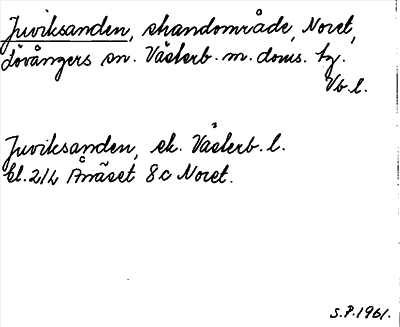 Juviksanden, strandområde, Noret,
Lövångers sn. Västerb. m. doms. tg.
Vb. l.
Juviksanden, ek. Västerb. l.
bl. 212 Ånäset 8c Noret.
S.P. 1961.